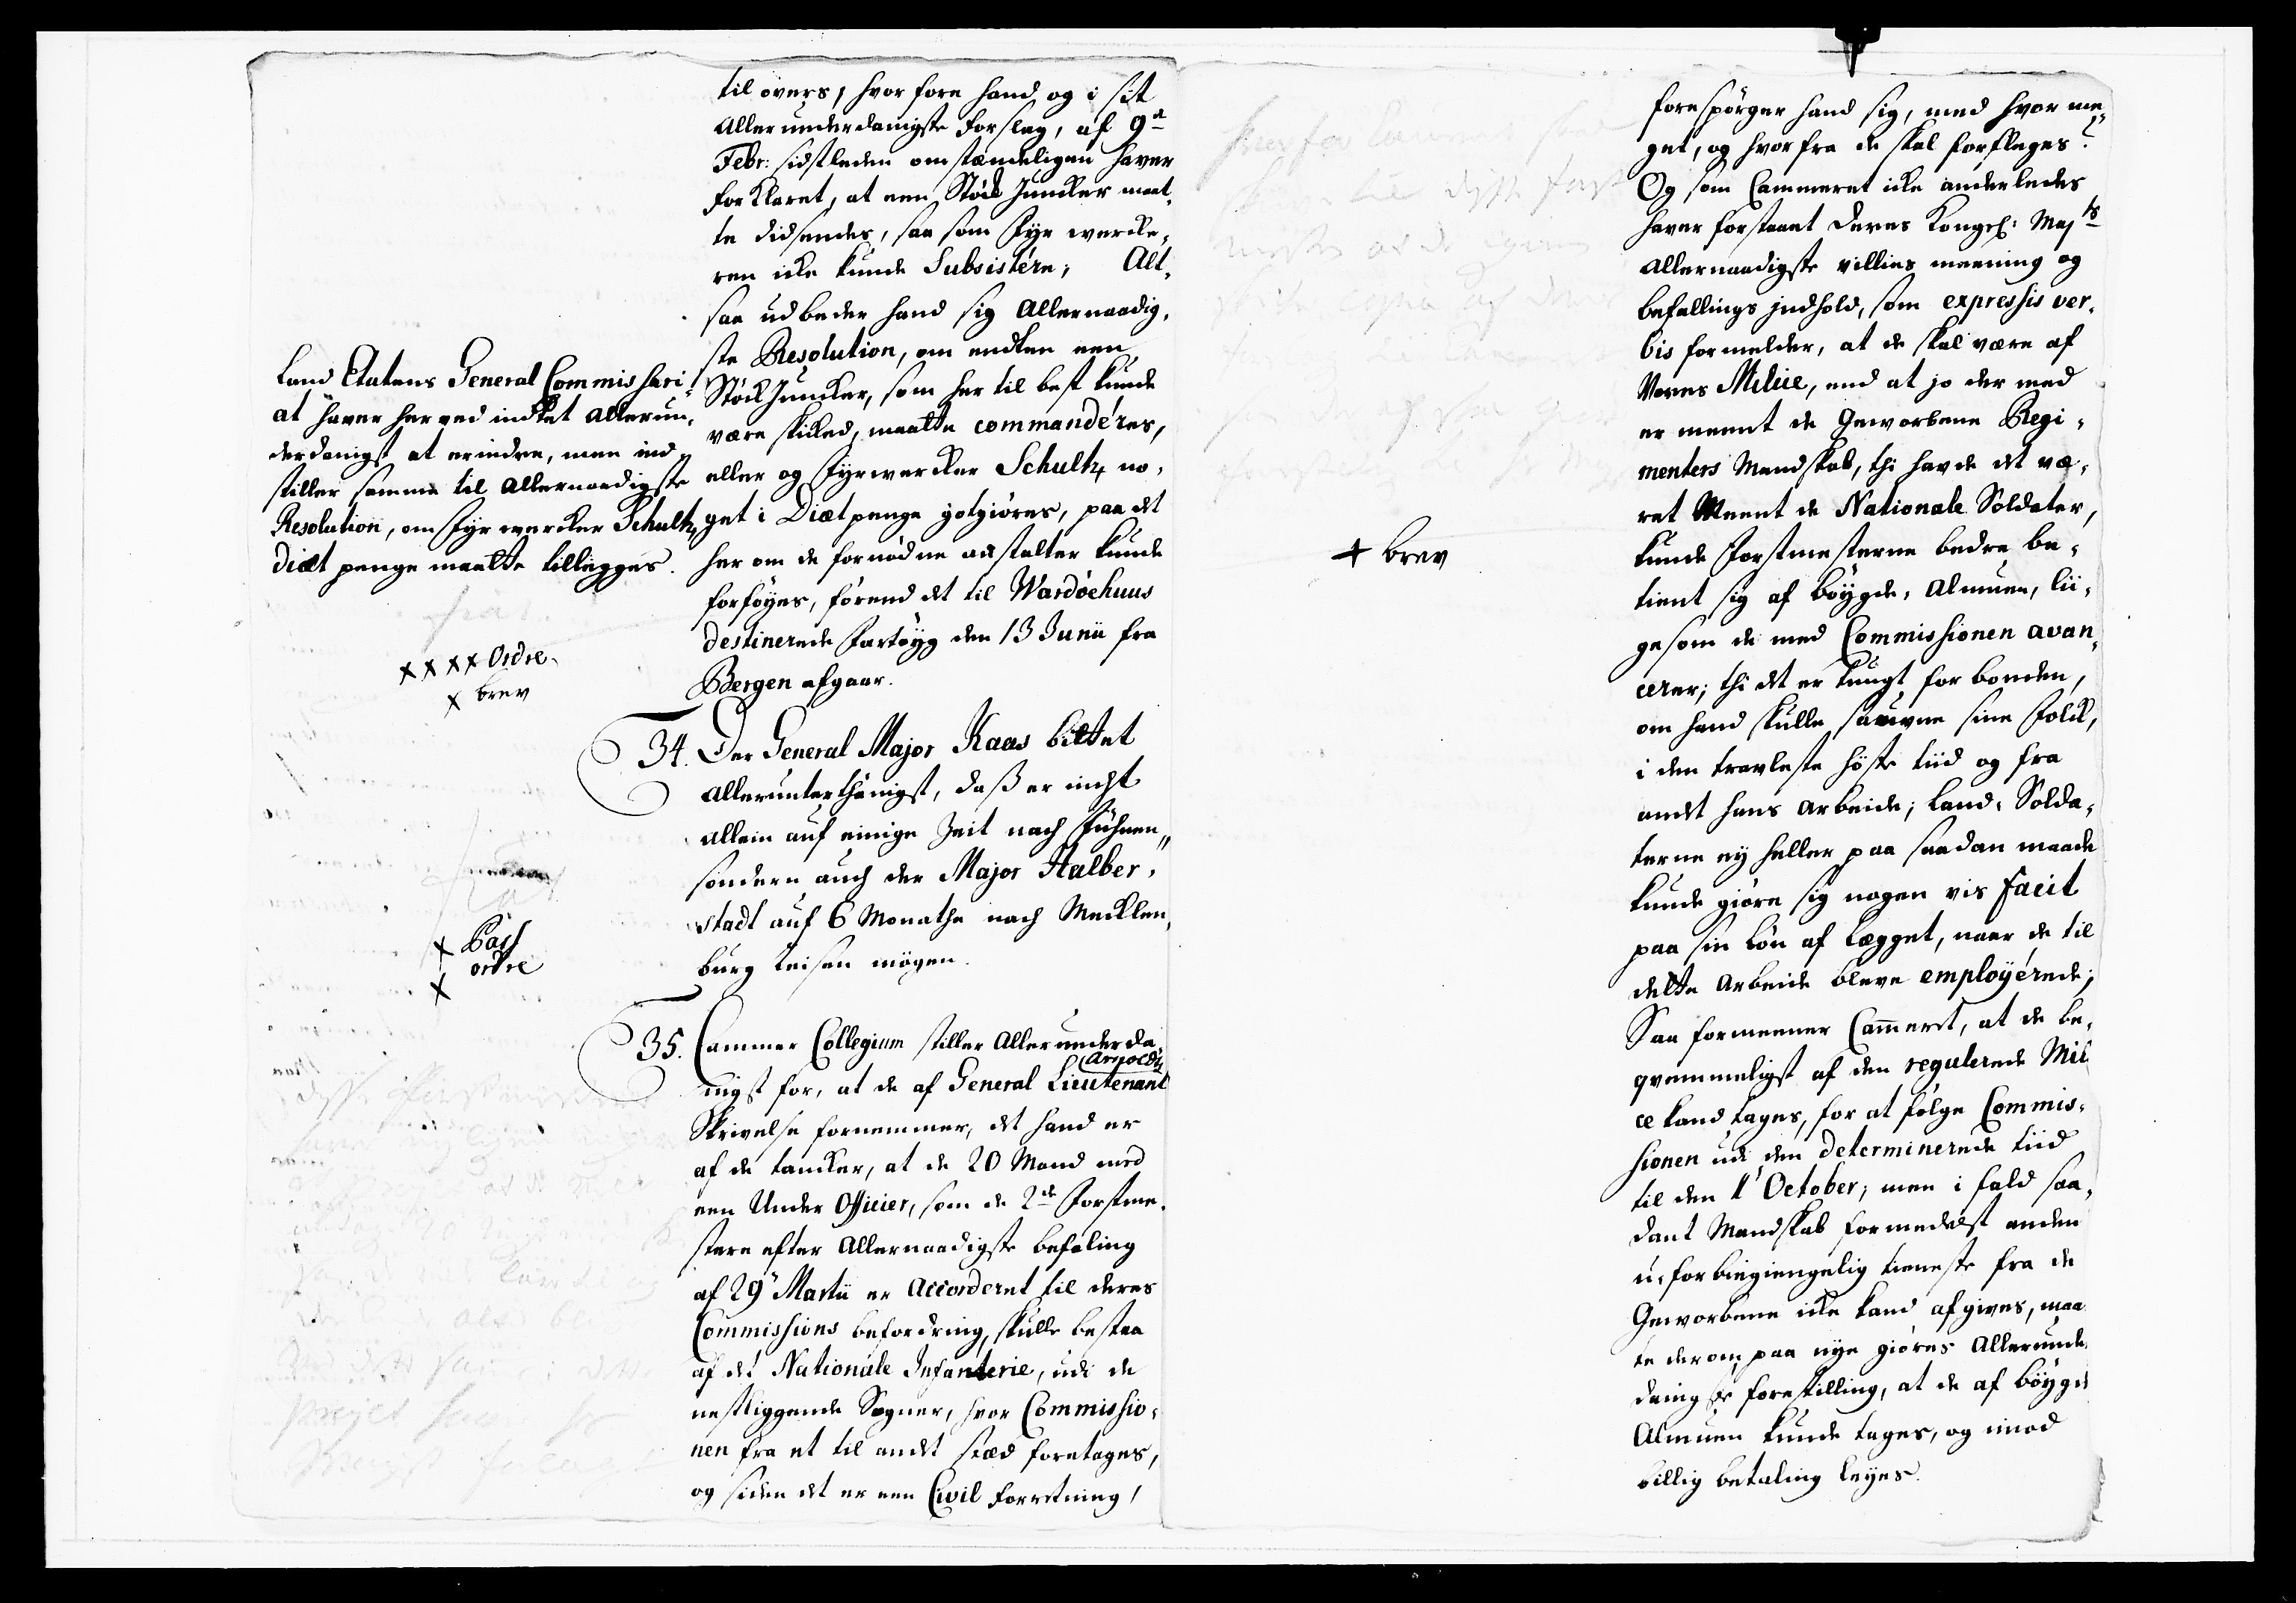 til övers, hvor fore hand og i sit
Allerunderdanigste Forslag, af 9de
Febr: sidstleden omstændeligen haver
forklaret, at een Stöck Juncker maat,
te didsendes, saa som Fyr werke,
ren icke kunde Subsistére; Alt,
saa udbeder hand sig Allernaadig,
ste Resolution, om endten een
Stöck Juncker, som her til best kunde
være skicked, maatte commandéres,
eller og Fyrwerker Schultz no,
get i Diætpenge gotgiöres, paa det
her om de fornödne anstalter kunde
forföyes, förend det til Wardöehuus
destinerede Fartöyg den 13 Junii fra
Bergen afgaar.
Land Etatens General Commissari,
at haver herved indtet allerun,
derdanigst at erindre, men ind,
stiller samme til allernaadigste
Resolution, om Fyrwercker Schultz
diæt penge maatte tillegges.
xxxx Ordre
x brev
34. Der General Major Kaas bittet
Allerunterthänigst, daß er nicht
allein auf einige Zeit nach Fühnen,,
sondern auch der Major Halber,
stadt auf 6 Monathe nach Mecklen,
burg reisen mögen.
x Pass
x ordre
35. Cammer Collegium stiller Allerunderda
nigst for, at de af General Lieutenant Arnoldtz
Skrivelse fornemmer, det hand er
af de tancker, at de 20 Mand med
een Under Officier, som de 2de Forstme,
stere efter Allernaadigste befaling
af 29 Martii er Accorderet til deres
Commissions befordring, skulle bestaa
af det Nationale Infanterie, udi de
nestliggende Sogner, hvor Commissio,
nen fra et til andet stæd foretages,
og siden det er een Civil forretning,
forespörger hand sig, med hvor me,
get, og hvorfra de skal forpfleges?
Og som Cammeret icke anderledes
haver forstaaet Deres Kongel: Majts
Allernaadigste villies meening og
befallings indhold, som expressis ver,
bis formelder, at de skal være af
Vores Milice, end at jo der med
er meent de Geworbene Regi,
menters Mandskab, thi havde det væ,
ret Meent de Nationale Soldater,
kunde Forstmesterne bedre be,
tient sig af böygde, Almuen, lii,
gesom de med Commissionen avan,
cerer; thi det er tungt for bonden,
om hand skulle saufne sine Folck,
i den travleste höste tiid og fra
andet hans Arbeide; Land, Solda,
terne ey heller paa saadan maade
kunde giöre sig nogen vis facit
paa sin Lön af Legget, naar de til
dette Arbeide bleve employérede;
Saa formeener Cam̄eret, at de be,
qvemmeligst af den regulerede Mili
ce kand tages, for at fölge Commis,
sionen udi den determinerede tiid
til den 1' October; men i fald saa,
dant Mandskab formedelst anden
u,forbiegiengelig tieneste fra de
Geworbene icke kand afgives, maa
te derom paa nye giöres Allerunde
danigste forestilling, at de af böygde
Almuen kunde tages, og imod
billig betaling leyes.
+ brev